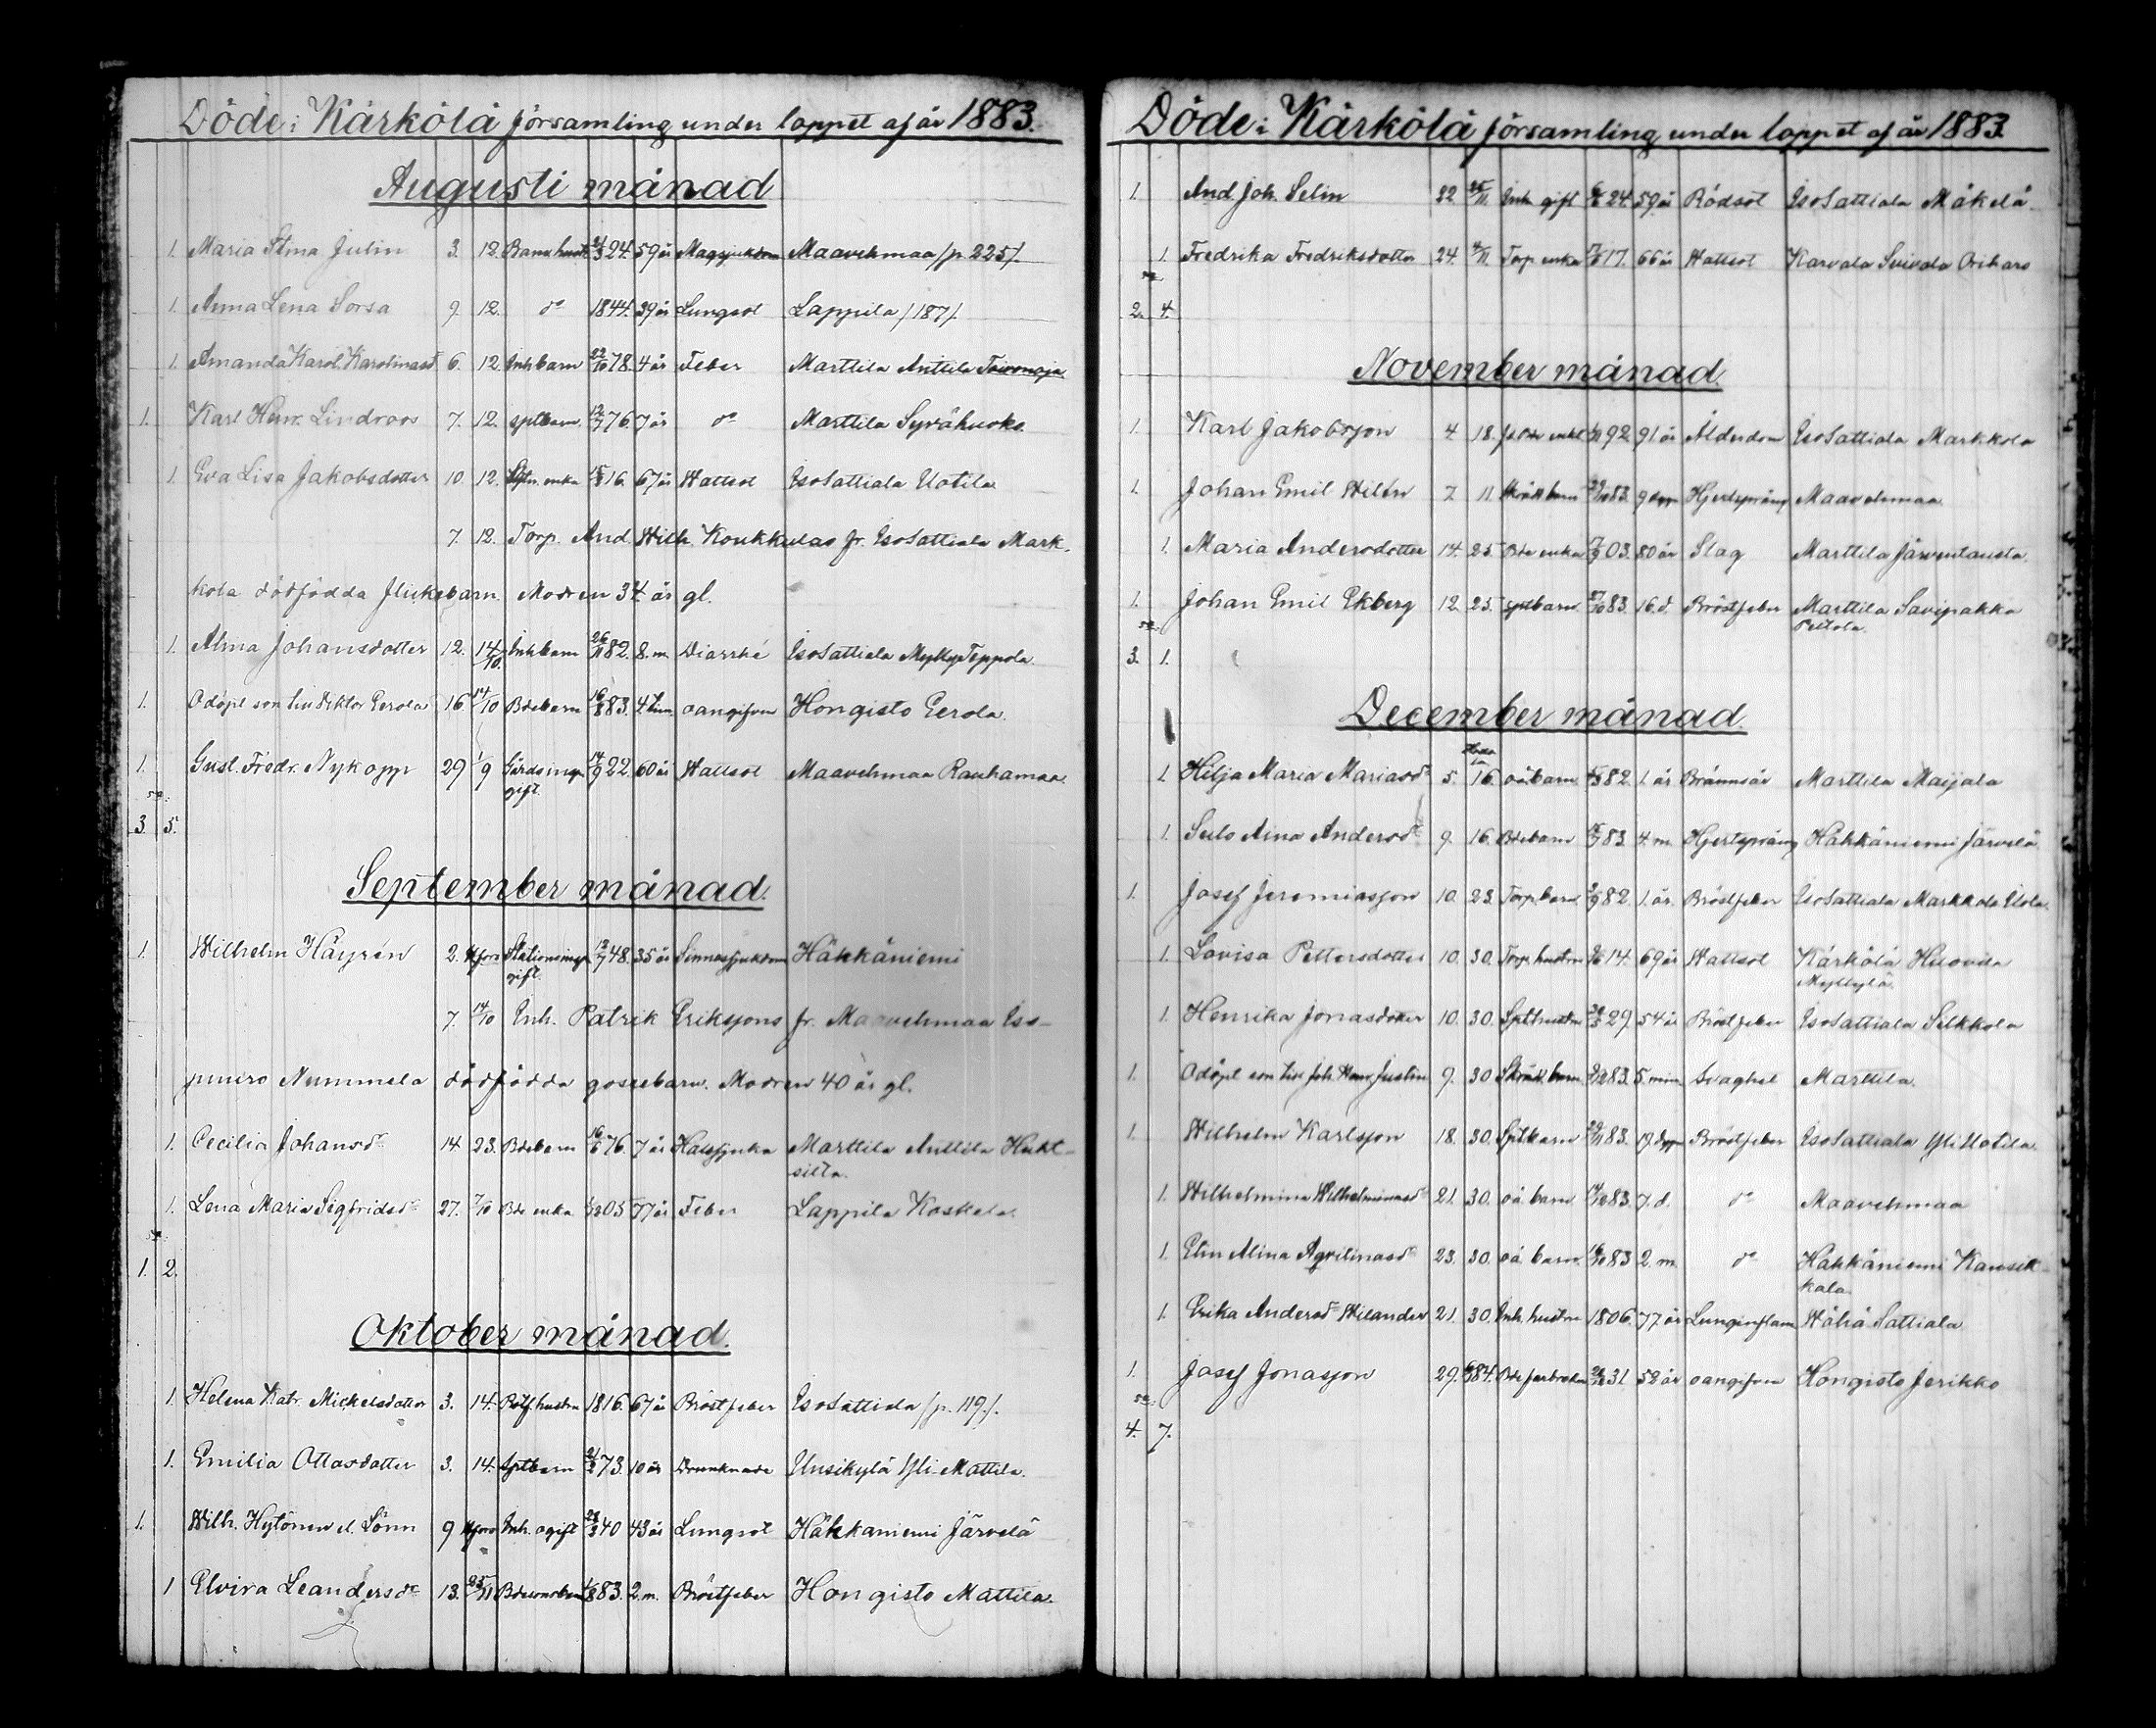 Döde i Kärkölä församling under loppet af år 1883.
Augusti månad
1. Maria Stina Julin 3. 12. 24. 59 år Magsjukdom Maavehmaa /p. 225/.
1. Anna Lena Sorsa 9. 12. do 1844. 39 år Lungsot Lappila /187/.
1. Amanda Karol. Karolinasd 6. 12. Inh barn 22/10 78. 4 år Feber Marttila Anttila Toivonoja
1. Karl Henr. Lindroos 7. 12. sptbarn 12/7 76. 7 år do Marttila Syvähuoko.
1. Eva Lisa Jakobsdotter 10. 12. enka 16. 67 år Wattsot IsoSattiala Uotila
7. 12. Torp. And. Wilh. Koukkulas fr. IsoSattiala Mark-
kola dödfödda flickebarn. Modren 34 år gl.
1. Alma Johansdotter 12. 14/10. Inh barn 26/11 82. 8. m. Diarrhé IsoSattiala MyllyTeppola.
1. Odöpt son till Viktor Eerola 16 14/10 Bdebarn 16/8 83. 4 tim. oangifven Hongisto Eerola.
1. Gust. Fredr. Nykopp 29 1/9 Gårdsinsp. gift. 14/9 22. 60 år Wattsot Maavehmaa Rauhamaa.
Sa.
3. 5.
September månad.
1. Wilhelm Häyrén 2. Hfors Stationsinsp. gift. 12/7 48. 35 år Sinnessjukdom Hähkäniemi
7. 14/10 Inh. Patrik Erikssons fr. Maavehmaa Iso-
puiro Nummela dödfödda gossebarn. Modren 40 år gl.
1. Cecilia Johansdr 14 23. Bdebarn 16/6 76. 7 år Halssjuka Marttila Anttila Huht-
silta.
1. Lena Maria Sigfridsdr 27. 7/10 Bde enka 05 77 år Feber Lappila Koskela.
Sa.
1. 2.
Oktober månad.
1. Helena Katr. Mickelsdotter 3. 14. hustru 1816. 67 år Bröstfeber IsoSattiala /p. 119./.
1. Emilia Ottosdotter 3. 14. Sptbarn 73. 10 år Drunknade Uusikylä Yli-Mattila.
1. Wilh. Hytönen el. Lönn 9 Hfors Inh. ogift 40 43 år Lungsot Hähkäniemi Järvelä
1 Elvira Leandersdr 13. 25/11 83. 2. m. Bröstfeber Hongisto Mattila.
Döde i Kärkölä församling under loppet af år 1883.
1. And. Joh. Selin 22 25/11. Inh. gift 24. 59 år Rödsot IsoSattiala Mäkelä
1. Fredrika Fredriksdotter 24. /11. Torp. enka 17. 66 år Wattsot Karvala Suivala Orihars
Sa.
2. 4.
November månad.
1. Karl Jakobsson 4 18. enkl. 92. 91 år Ålderdom IsoSattiala Markkola
1. Johan Emil Wilén 7 11. Skrädd barn 29/10 83. 9 dygn Hjertspräng Maavehmaa
1. Maria Andersdotter 14. 25. Bde enka 03. 80 år Slag Marttila Järventausta.
1. Johan Emil Ekberg 12. 25. sptbarn. 27/10 83. 16. d. Bröstfeber Marttila Savipakka
Peltola.
Sa.
3. 1.
December månad.
1. Hilja Maria Mariasdr 5. 16. oä. barn. 82. 1. år Brännsår Marttila Maijala
1. Sulo Aina Andersdr 9. 16. Bdebarn 83. 4. m. Hjertspräng Hähkäniemi Järvelä
1. Josef Jeremiasson 10. 23. Torp barn 82. 1. år Bröstfeber IsoSattiala Markkola
1. Lovisa Pettersdotter 10. 30. Torp. hustru 14. 69 år Wattsot Kärkölä Huovila
Myllylä.
1. Henrika Jonasdotter 10. 30. Spthustru 29. 54 år Bröstfeber IsoSattiala Silkkola
1. Odöpt son till Joh. Justin 9. 30 Skrädd. barn 83. 5. min. Svaghet Marttila.
1. Wilhelm Karlsson 18. 30. Sptbarn 29/11 83. 19. dygn Bröstfeber IsoSattiala YliUotila.
1. Wilhelmina Wilhelminasd 21. 30. oä barn 14/12 83. 7. d. do Maavehmaa
1. Elin Alina Agvilinasdr 23. 30. oä. barn. 16/10 83 2. m. do Hähkäniemi Kansik-
kala.
1. Erika Andersdr Wilander 21. 30. Inh. hustru 1806. 77 år Lunginflam Wähä Sattiala
1. Josef Jonasson 29. 84. 31. 52 år oangifven Hongisto Jerikko
Sa.
4. 7.